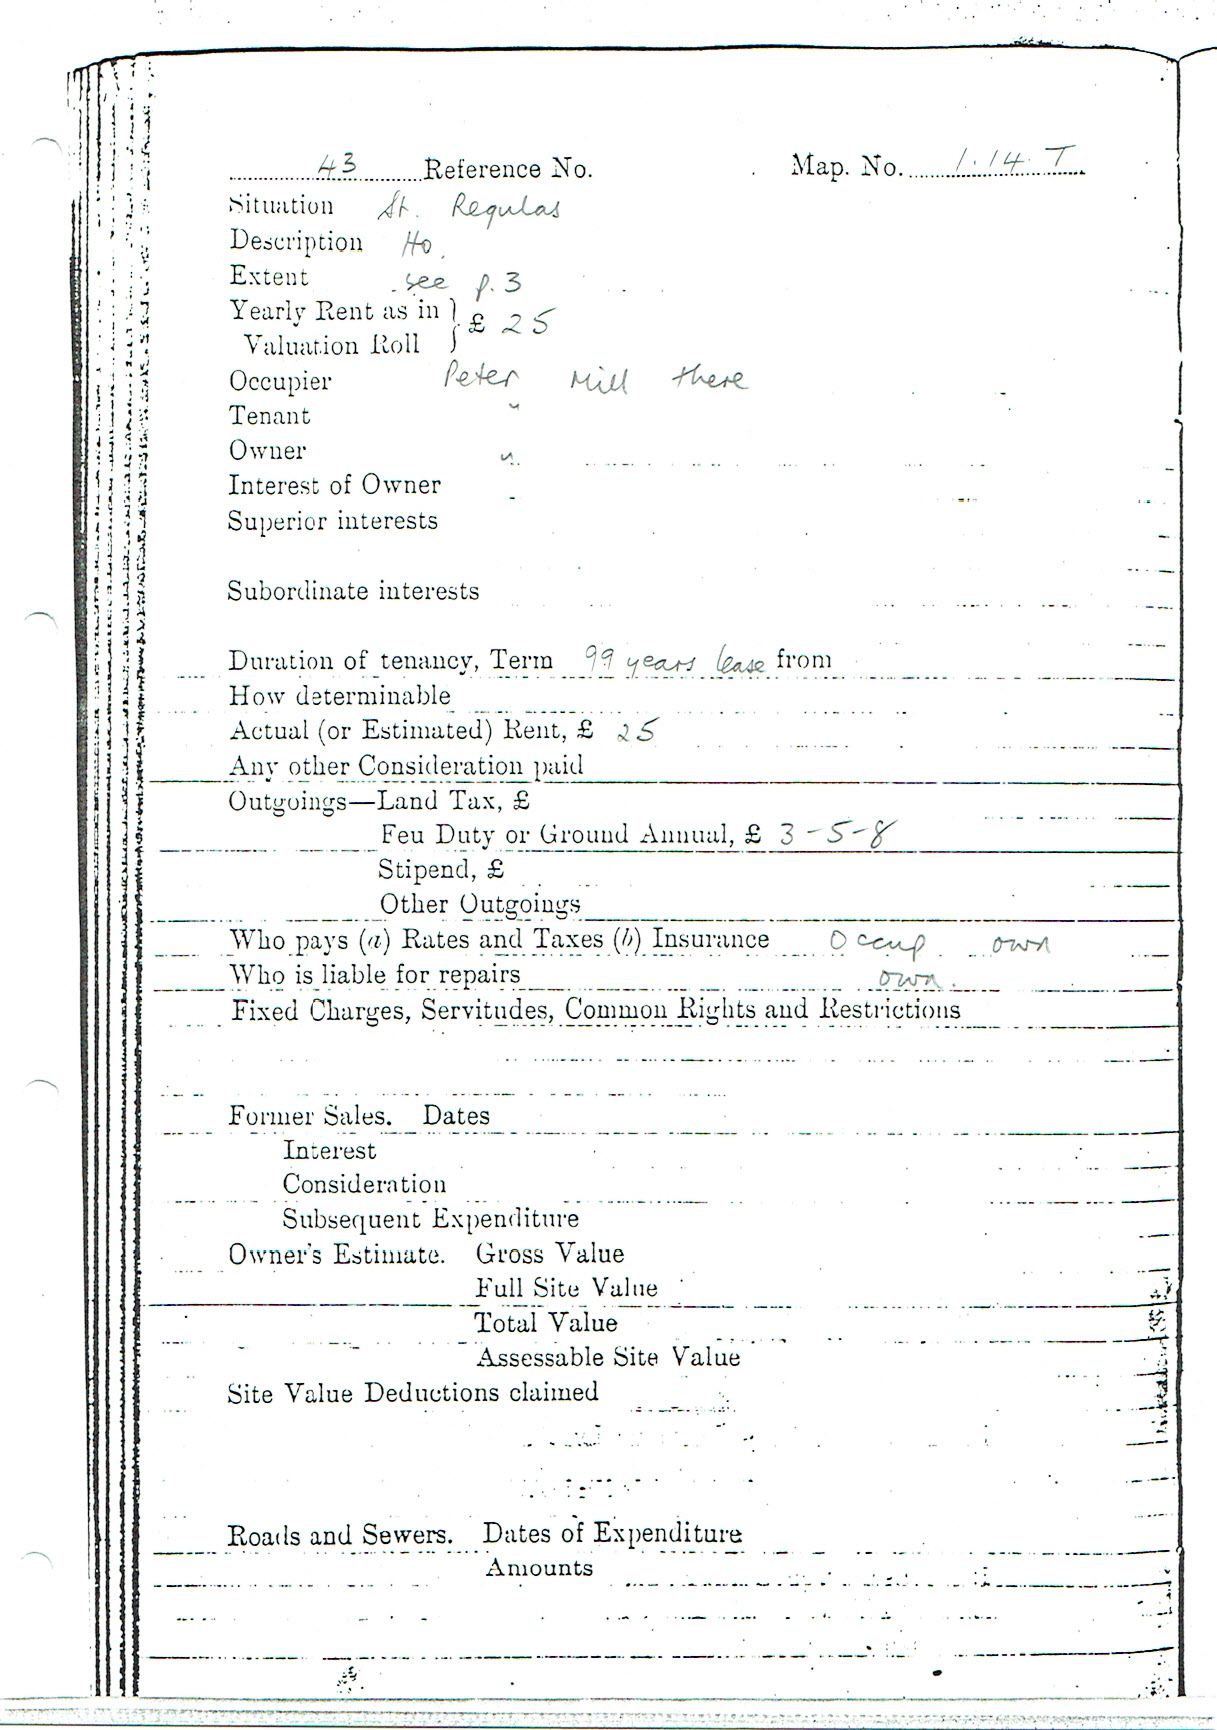 43 Reference No. Map. No. 1.14 T
Situation St. Regulas
Description Ho.
Extent see p. 3
Yearly Rent as in } £ 25
Valuation Roll
Occupier Peter Mill there
Tenant "
Owner "
Interest of Owner
Superior interests
Subordinate interests
Duration of tenancy, Term 99 years lease from
How determinable
Actual (or Estimated) Rent, £ 25
Any other Consideration paid
Outgoings—Land Tax, £
Feu Duty or Ground Annual, £ 3-5-8
Stipend, £
Other Outgoings
Who pays (a) Rates and Taxes (b) Insurance Occup own
Who is liable for repairs own.
Fixed Charges, Servitudes, Common Rights and Restrictions
Former Sales. Dates
Interest
Consideration
Subsequent Expenditure
Owner's Estimate. Gross Value
Full Site Value
Total Value
Assessable Site Value
Site Value Deductions claimed
Roads and Sewers. Dates of Expenditure
Amounts